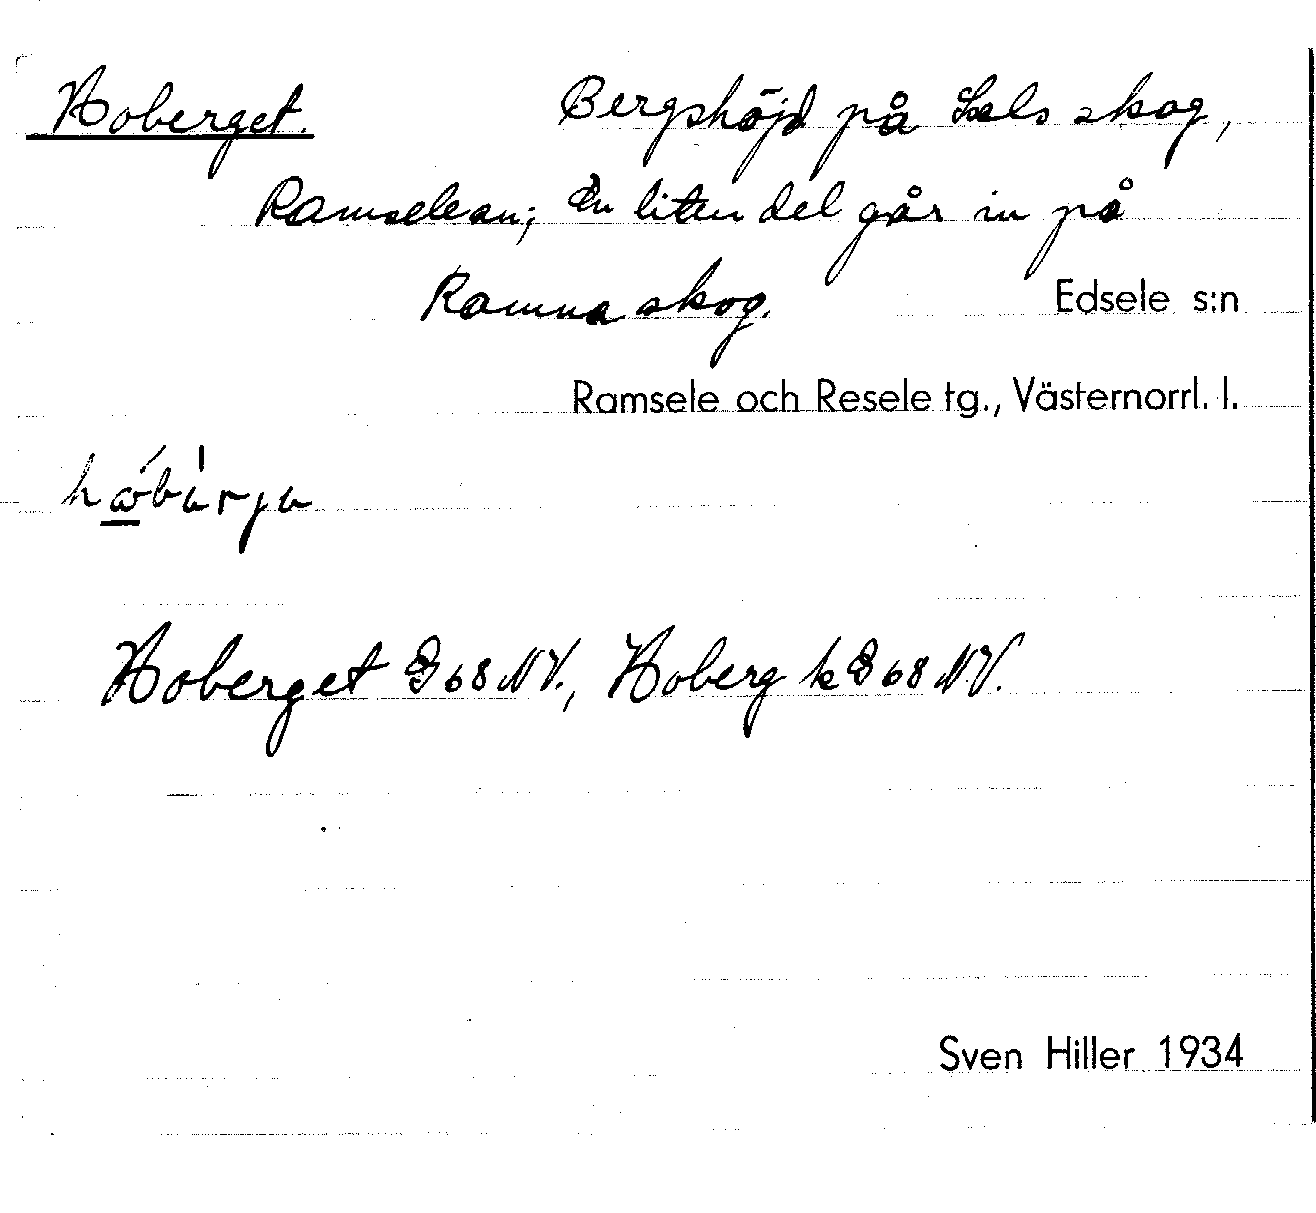 Hoberget. Bergshöjd på Sels skog,
Ramselean; En liten del går in på
Ramna skog. Edsele s:n
Ramsele och Resele tg., Västernorrl. l.
Hoberget G 68 NV., Hoberg k G 68 NV.
Sven Hiller 1934